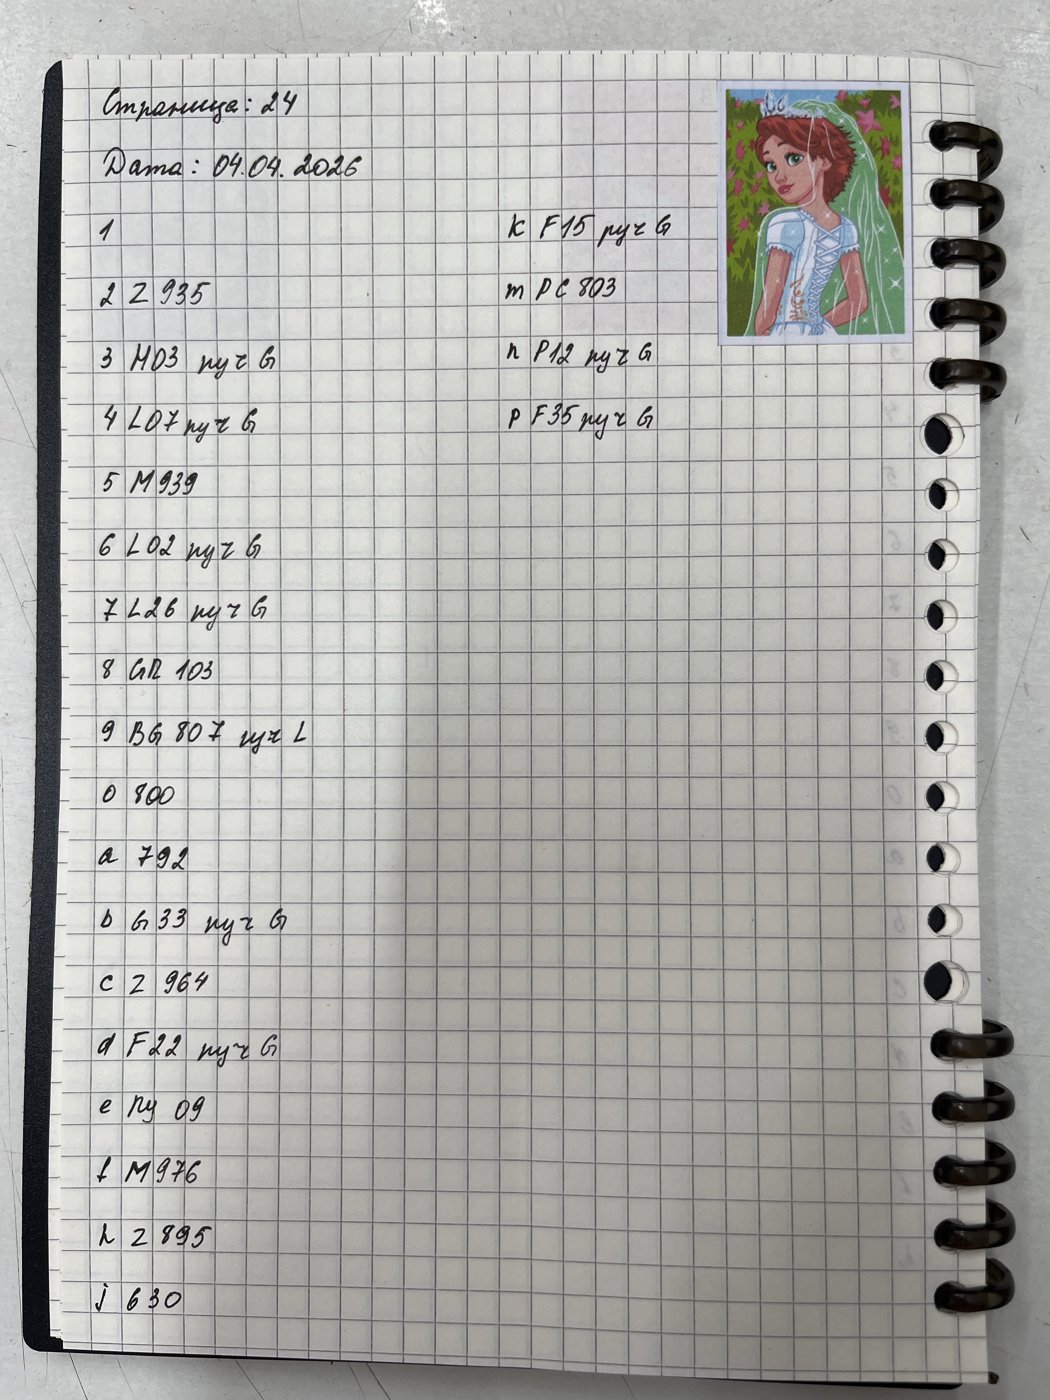 Страница: 24
Дата: 04.04.2026
1
2 Z 935
3 H03 руч G
4 L07 руч G
5 M939
6 L02 руч G
7 L26 руч G
8 GR 103
9 BG 807 руч L
0 800
a 792
b G33 руч G
c Z 964
d F22 руч G
e Пу 09
f M976
h Z 895
j 630
k F15 руч G
m PC 803
n P12 руч G
p F35 руч G